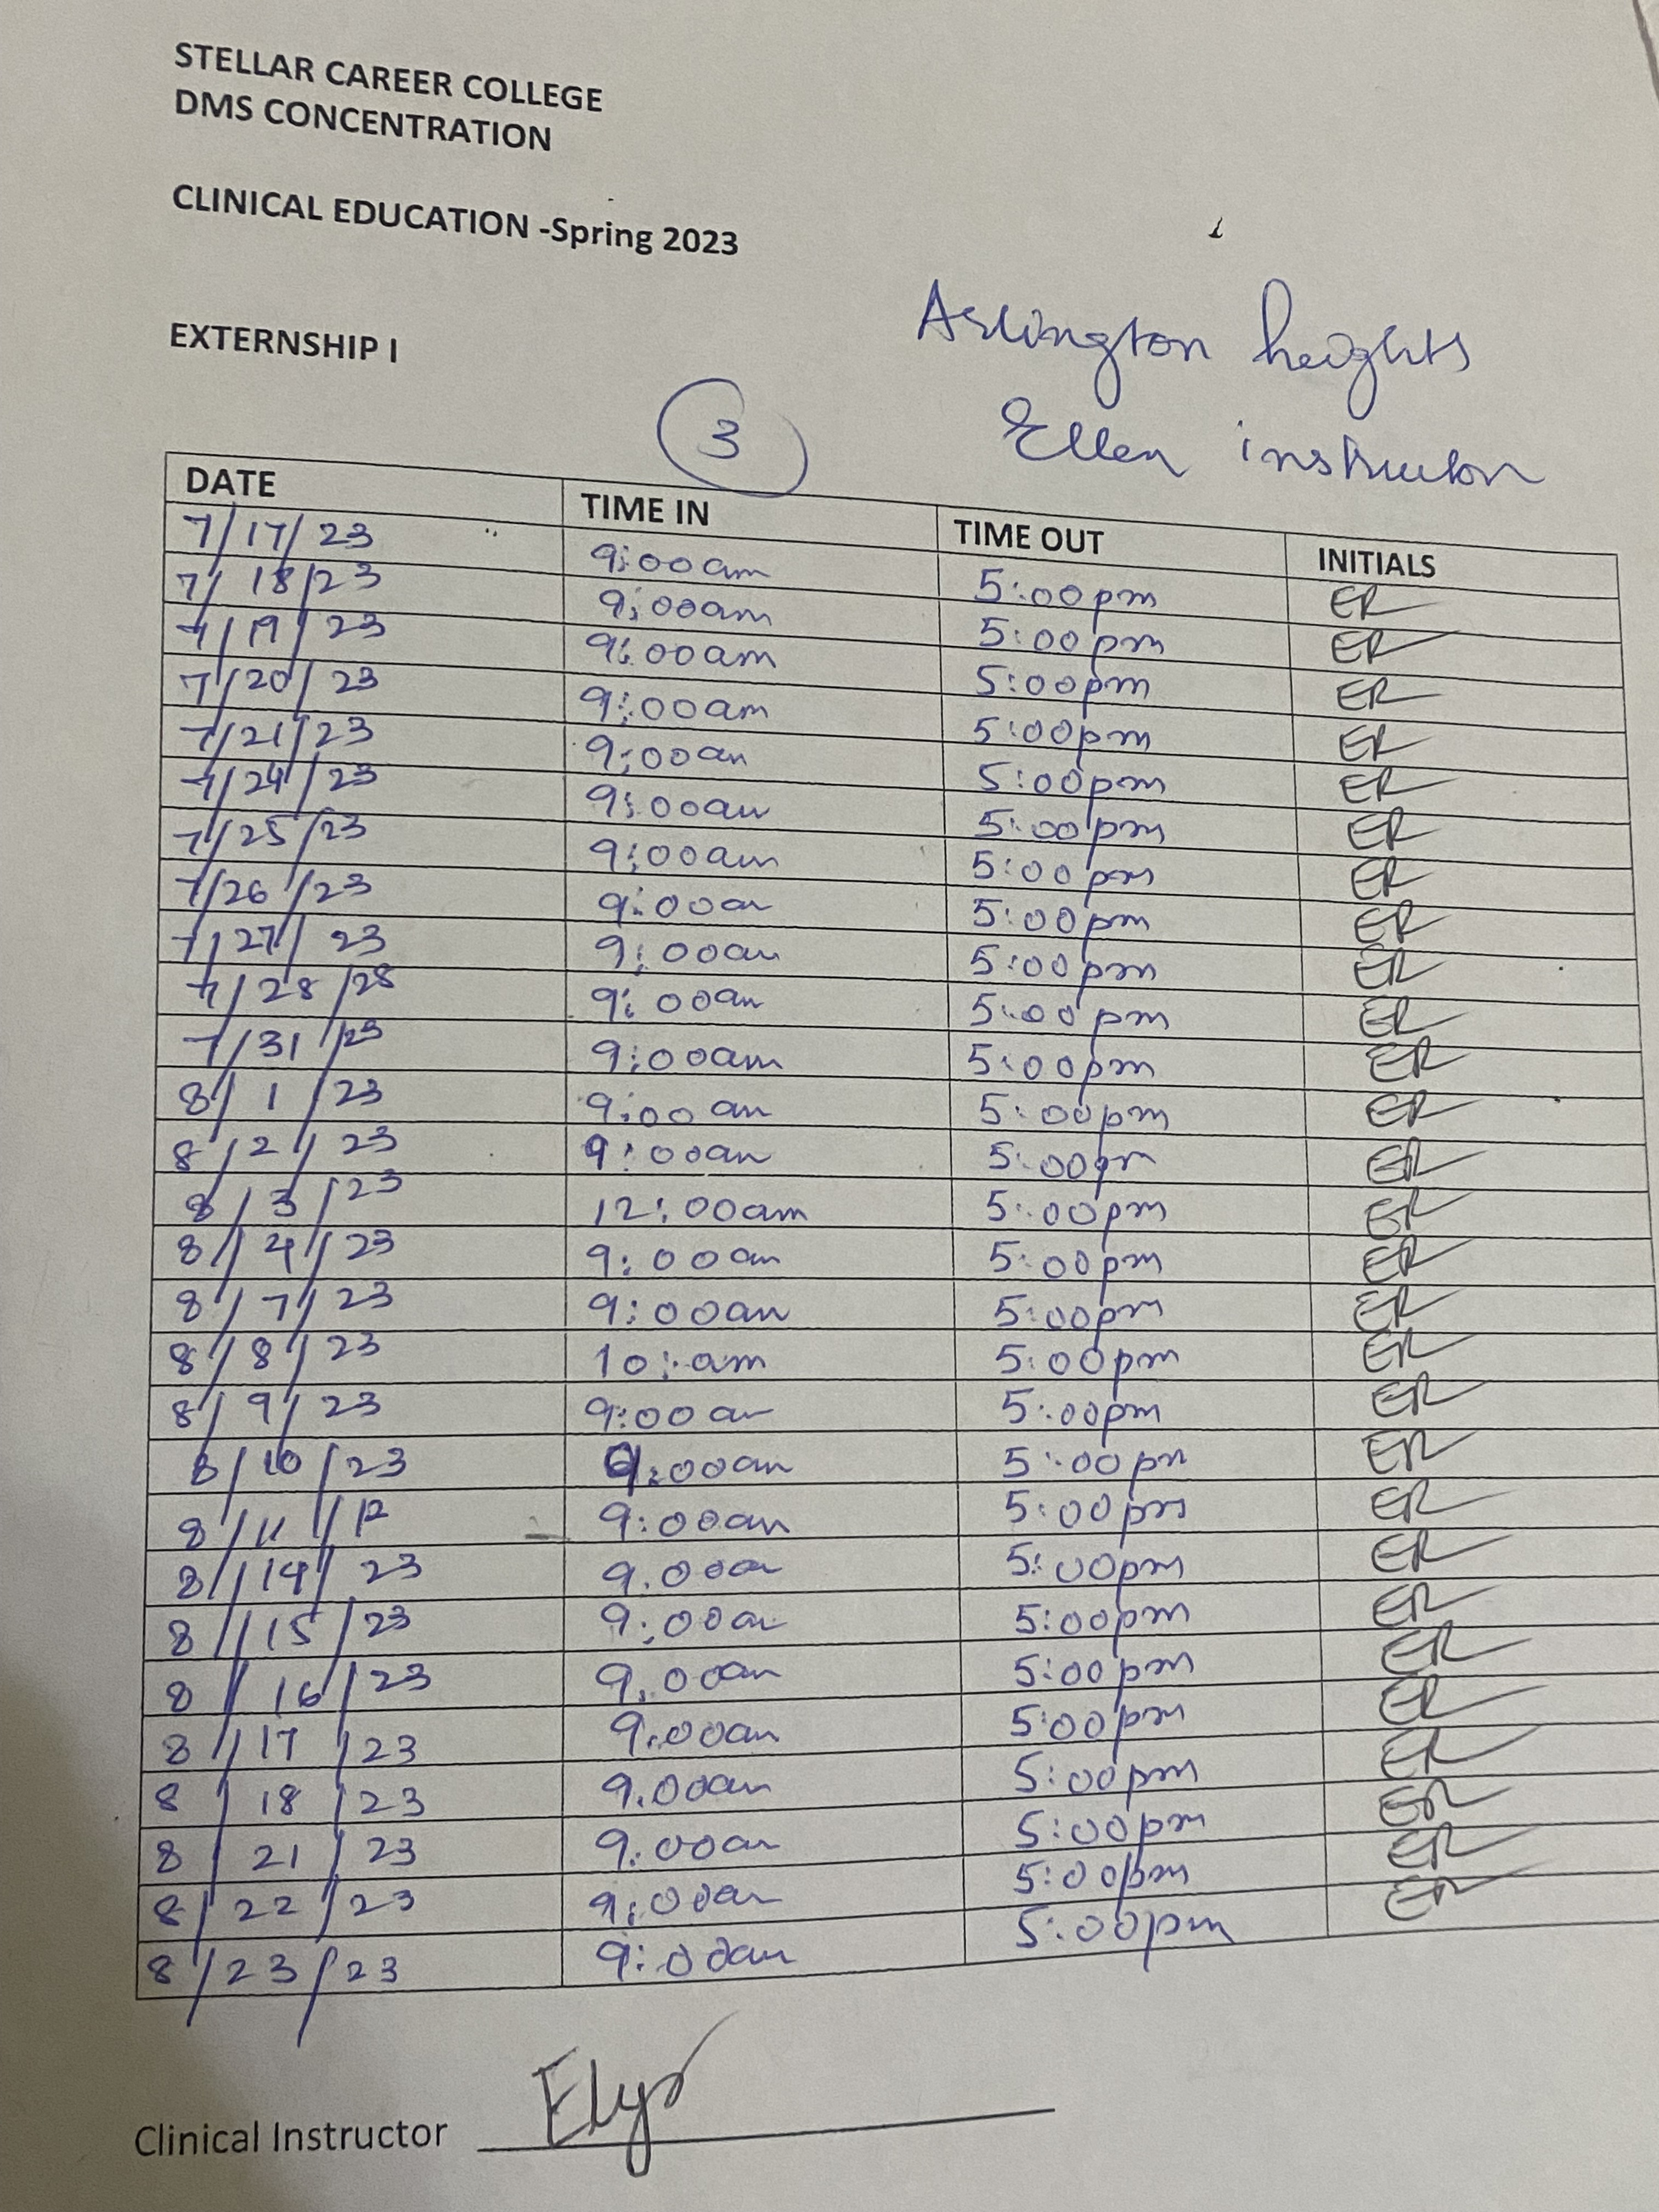 STELLAR CAREER COLLEGE
DMS CONCENTRATION
CLINICAL EDUCATION -Spring 2023
EXTERNSHIP I
Arlington heights
3
Ellen instructor
DATE TIME IN TIME OUT INITIALS
7/17/23 9:00am 5:00pm ER
7/18/23 9:00am 5:00pm ER
7/19/23 9:00am 5:00pm ER
7/20/23 9:00am 5:00pm ER
7/21/23 9:00am 5:00pm ER
7/24/23 9:00am 5:00pm ER
7/25/23 9:00am 5:00pm ER
7/26/23 9:00am 5:00pm ER
7/27/23 9:00am 5:00pm ER
7/28/28 9:00am 5:00pm ER
7/31/23 9:00am 5:00pm ER
8/1/23 9:00am 5:00pm ER
8/2/23 9:00am 5:00pm ER
8/3/23 12:00am 5:00pm ER
8/4/23 9:00am 5:00pm ER
8/7/23 9:00am 5:00pm ER
8/8/23 10:am 5:00pm ER
8/9/23 9:00am 5:00pm ER
8/10/23 9:00am 5:00pm ER
8/11/12 9:00am 5:00pm ER
8/14/23 9.00am 5:00pm ER
8/15/23 9:00am 5:00pm ER
8/16/23 9.00am 5:00pm ER
8/17/23 9.00am 5:00pm ER
8/18/23 9.00am 5:00pm ER
8/21/23 9:00am 5:00pm ER
8/22/23 9:00am 5:00pm ER
8/23/23 9:00am 5:00pm ER
Clinical Instructor